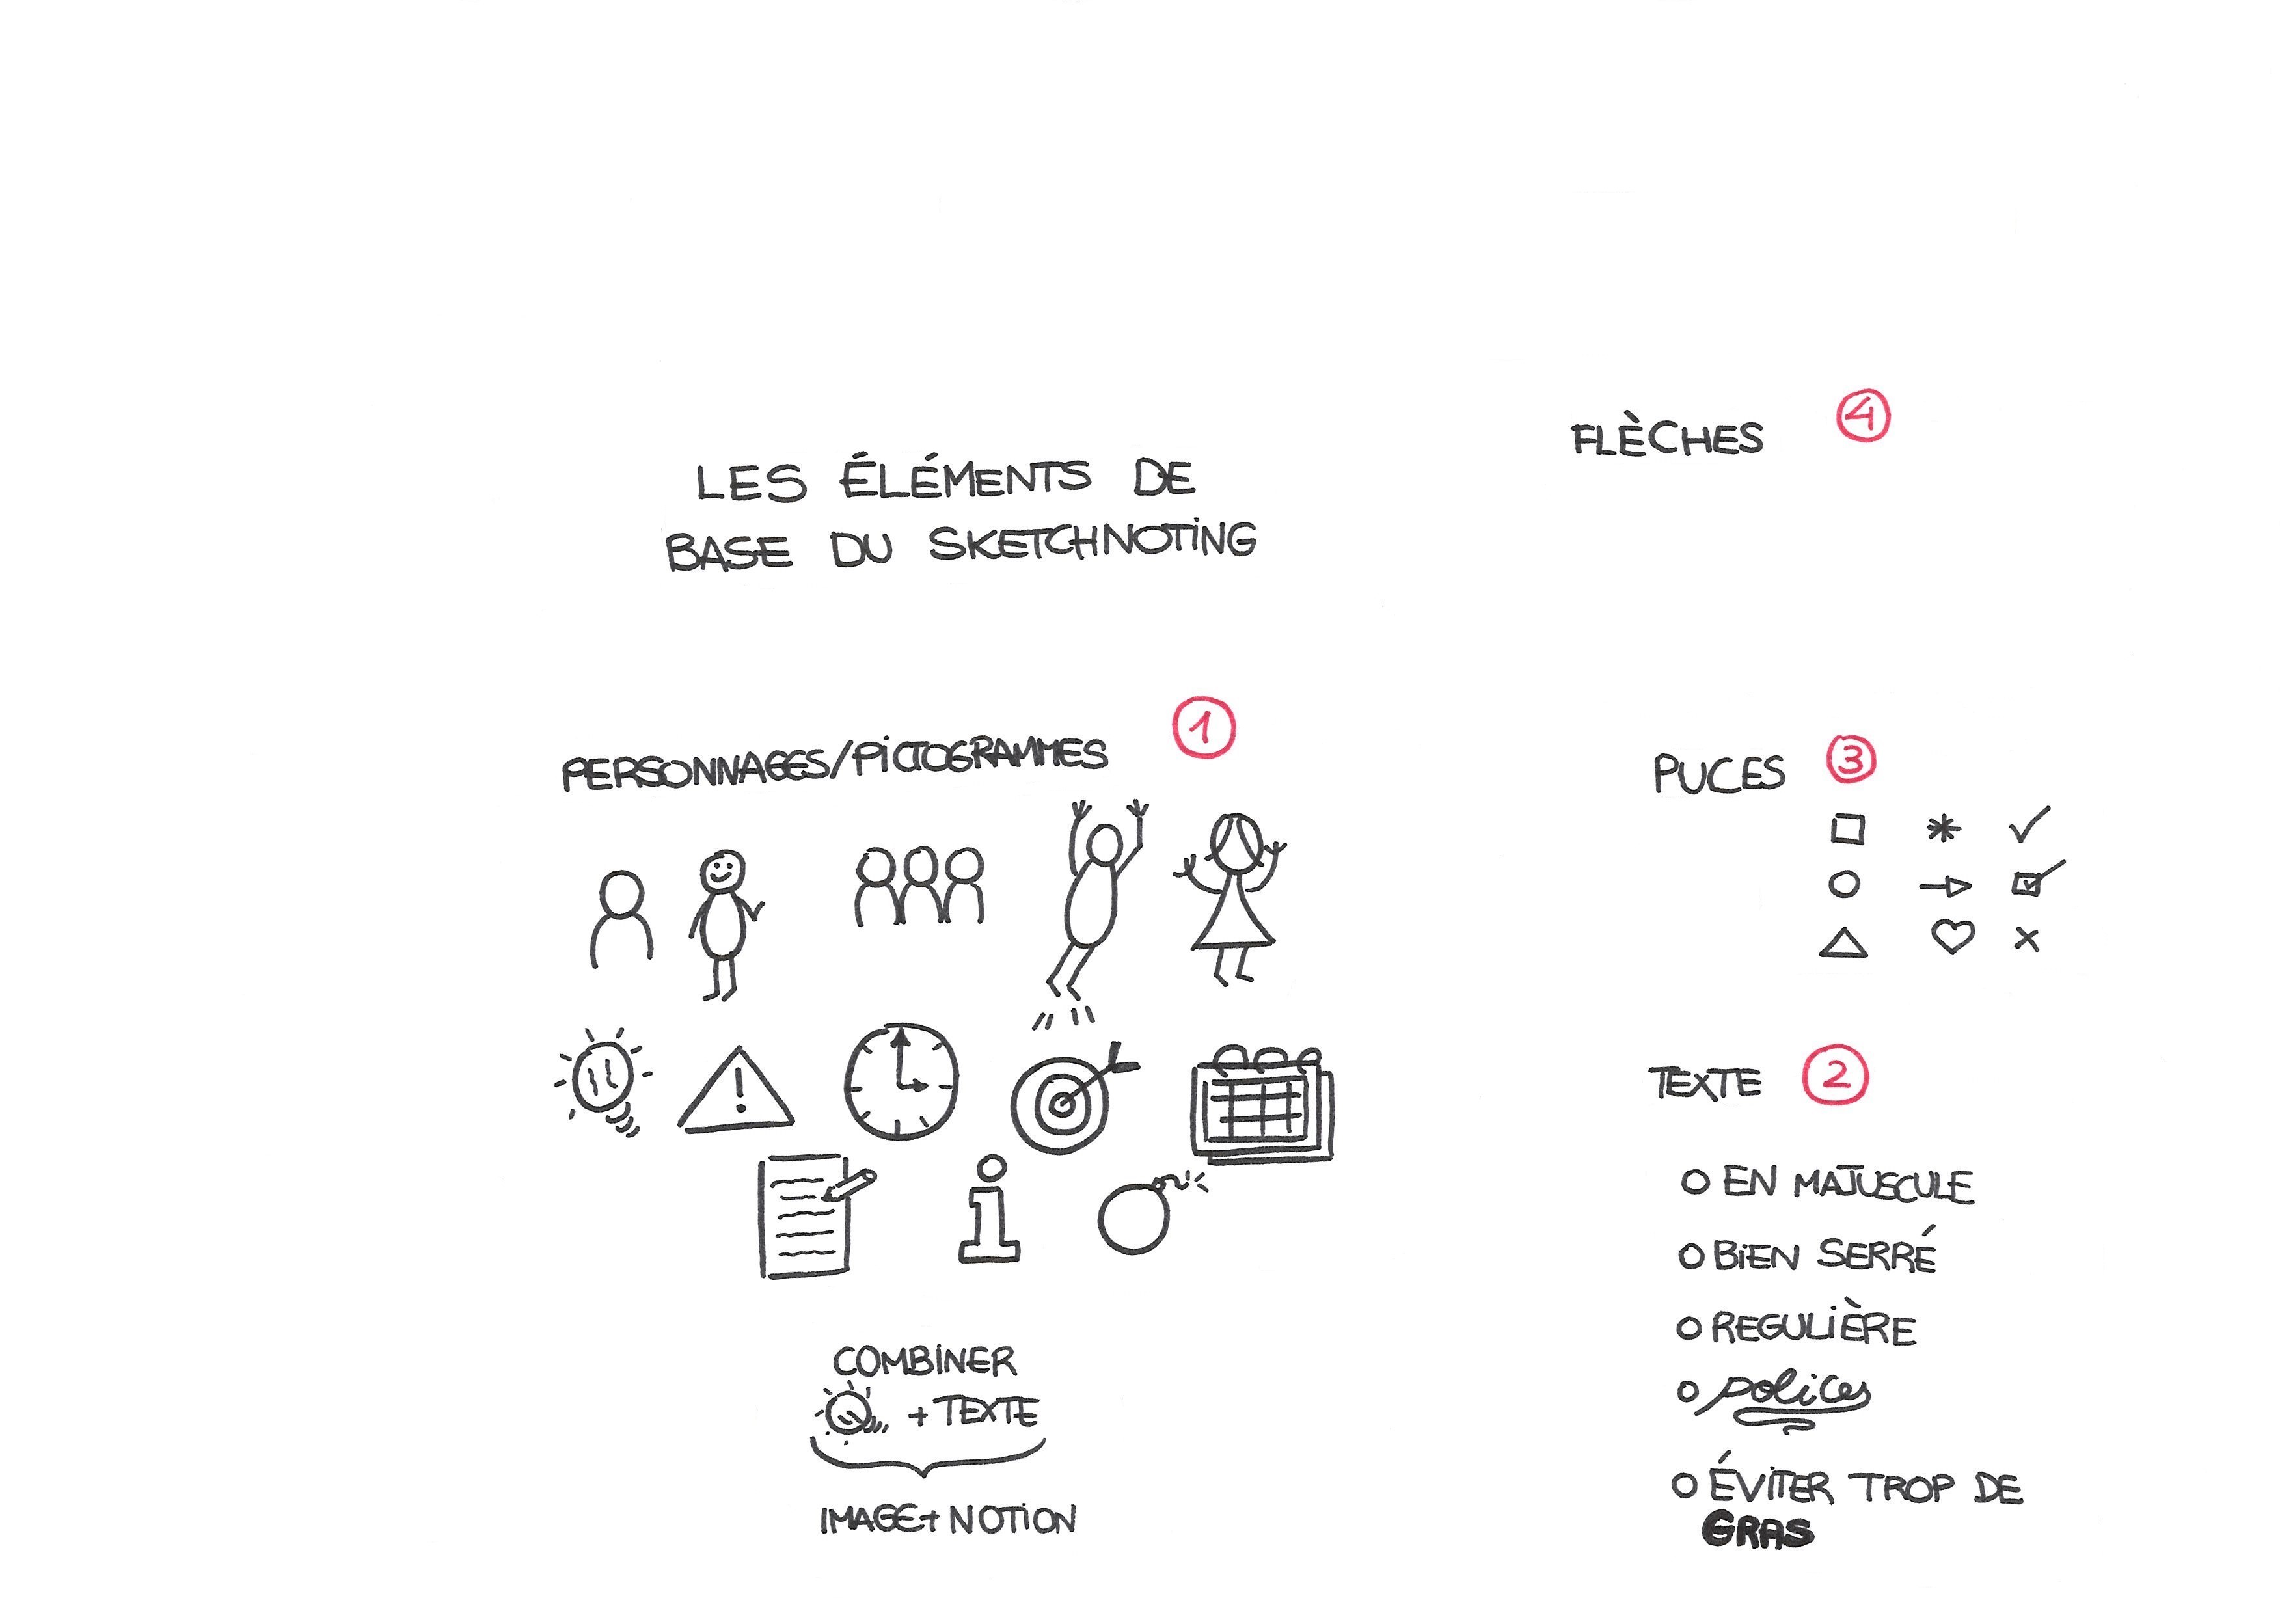 LES ÉLÉMENTS DE
BASE DU SKETCHNOTING
PERSONNAGES/PICTOGRAMMES 1
COMBINER
+ TEXTE
IMAGE + NOTION
TEXTE 2
O EN MAJUSCULE
O BIEN SERRÉ
O REGULIÈRE
O polices
O ÉVITER TROP DE
GRAS
PUCES 3
FLÈCHES 4